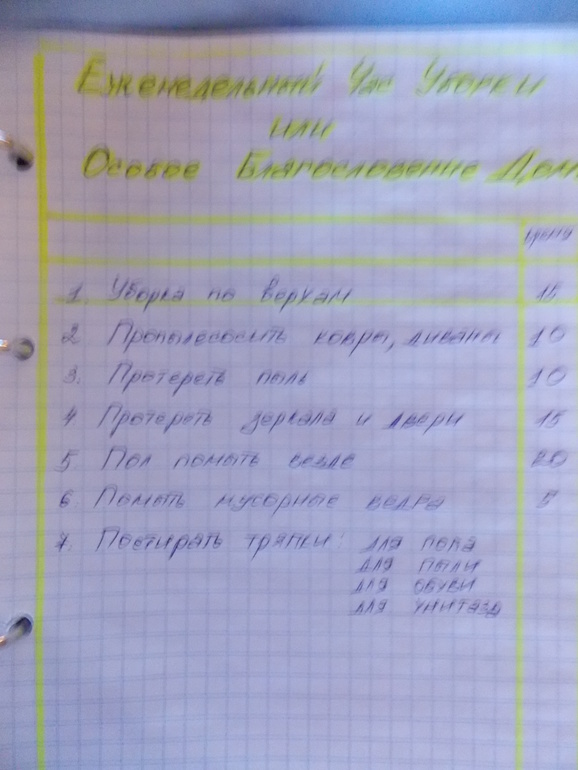 Еженедельный Час Уборки
или
Особое Благословение Дом
время
1. Уборка по верхам 15
2 Пропылесосить ковры, диваны 10
3. Протереть пыль 10
4 Протереть зеркала и двери 15
5 Пол помыть везде 20
6. Помыть мусорные ведра 5
7. Постирать тряпки: для пола
для пыли
для обуви
для унитаза